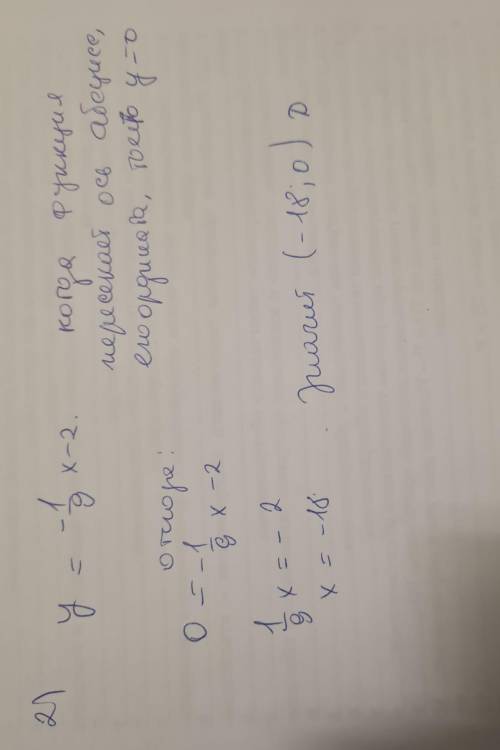 2) y = -1/9 x - 2. когда функция
пересекает ось абсцисс,
его ордината, тоесть y = 0
отсюда:
0 = -1/9 x - 2
1/9 x = - 2
x = -18. значит (-18; 0) D